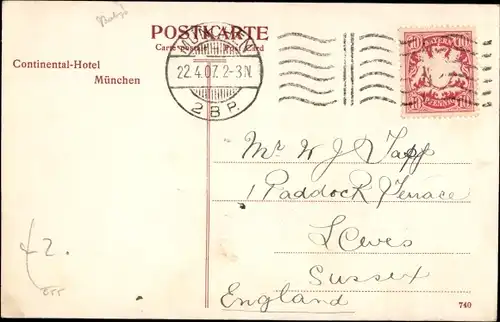 POSTKARTE
Carte postale Post Card
Continental-Hotel
München
22.4.07. 2-3N.
2 B P.
BAYERN
10 10
PFENNIG
Mr W J Tapp
1 Paddock Terrace
Lewes
Sussex
England
£2.
740